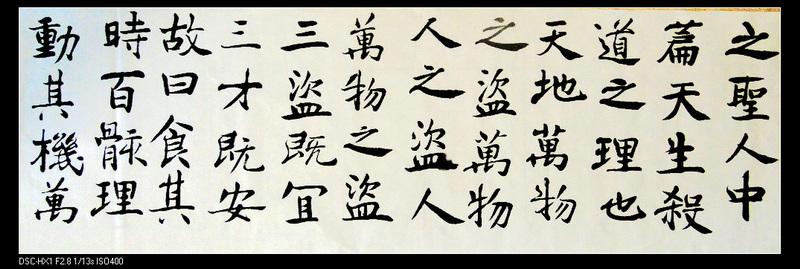 之聖人中
篇天生殺
道之理也
天地萬物
之盜萬物
人之盜人
萬物之盜
三盜既宜
三才既安
故曰食其
時百骸理
動其機萬
DSC-HX1 F2.8 1/13s ISO400